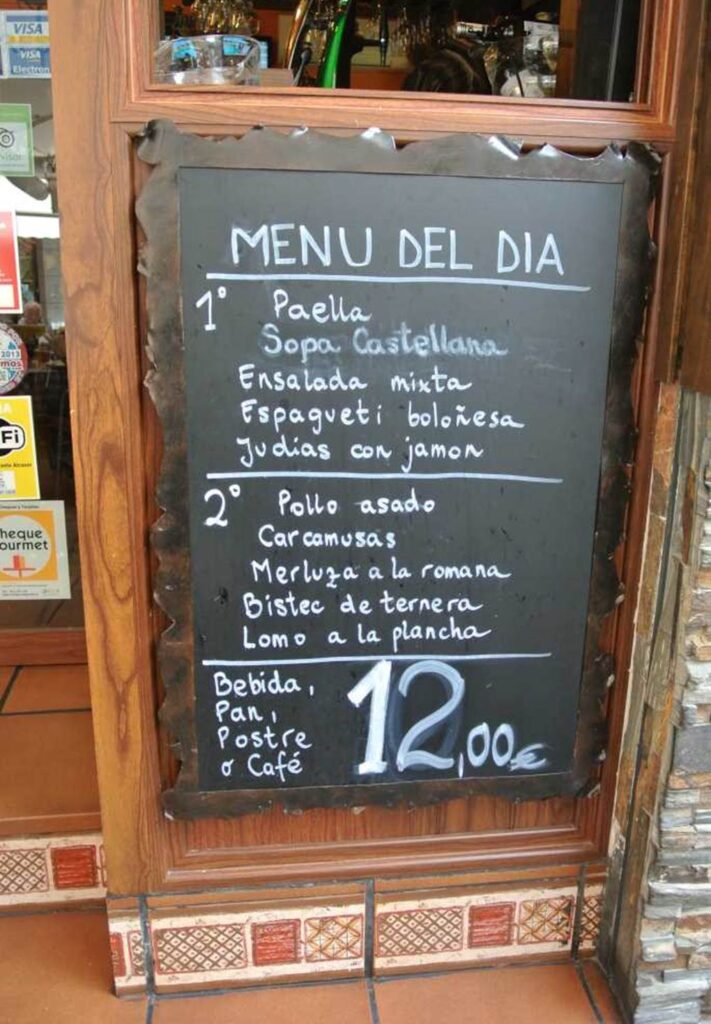 VISA
VISA
Electron
MENU DEL DIA
1° Paella
Sopa Castellana
Ensalada mixta
Espagueti boloñesa
Judias con jamon
2° Pollo asado
Carcamusas
Merluza a la romana
Bistec de ternera
Lomo a la plancha
Bebida,
Pan,
Postre
o Café
12,00€
2013
Fi
heque
ourmet